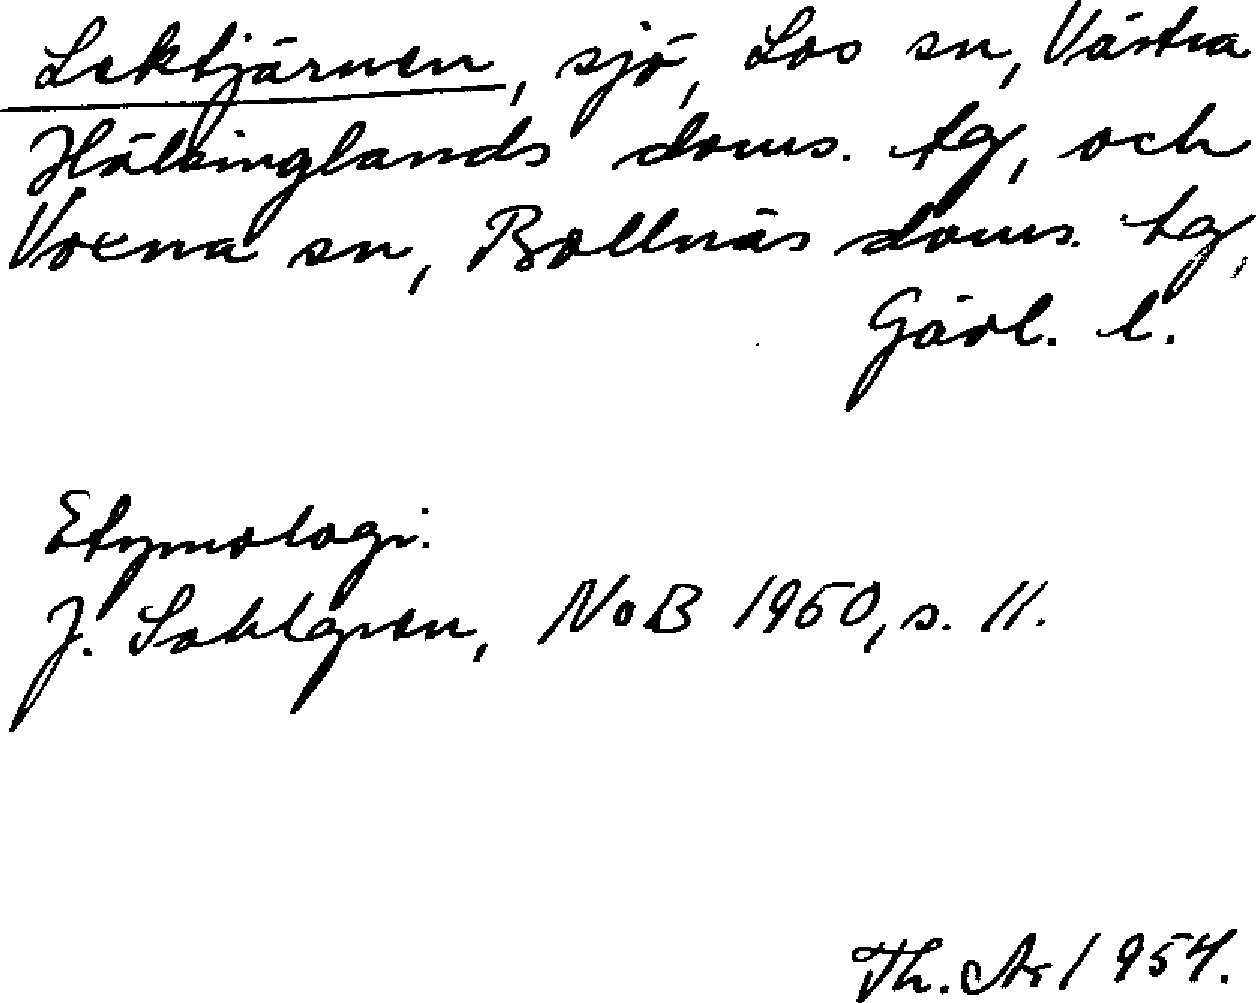 Lektjärnen, sjö, Los sn, Västra
Hälsinglands doms. tg, och
Voxna sn, Bollnäs doms. tg,
Gävl. l.
Etymologi.
J. Sahlgren, NoB 1950, s. 11.
Th. A. 1954.